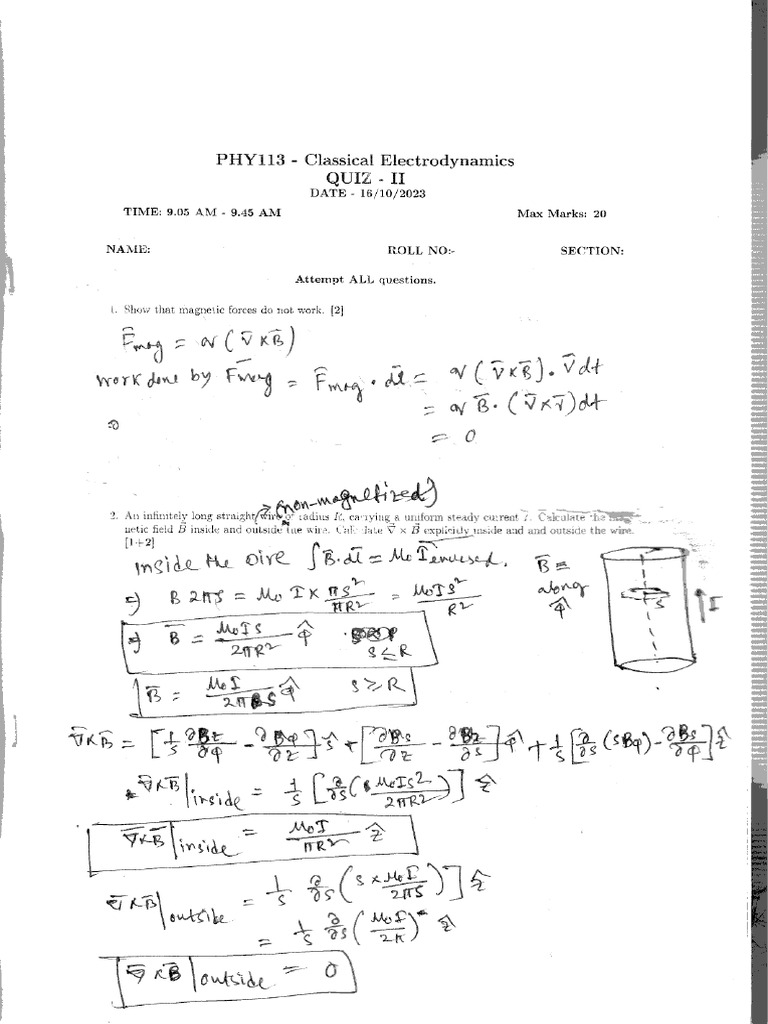 PHY113 - Classical Electrodynamics
QUIZ - II
DATE - 16/10/2023
TIME: 9.05 AM - 9.45 AM Max Marks: 20
NAME: ROLL NO:- SECTION:
Attempt ALL questions.
1. Show that magnetic forces do not work. [2]
F̄mag = q (V̄ × B̄)
Work done by F̄mag = F̄mag · dl̄ = q (V̄ × B̄) · V̄ dt
= q B̄ · (V̄ × V̄) dt
= 0
(non-magnetized)
2. An infinitely long straight wire of radius R, carrying a uniform steady current I. Calculate the mag-
netic field B̄ inside and outside the wire. Calculate ∇̄ × B̄ explicitly inside and and outside the wire.
[1+2]
Inside the wire ∫B̄·dl̄ = μ₀ I enclosed. B̄ = along φ̂
⇒ B 2πs = μ₀ I × πs²/πR² = μ₀Is²/R²
⇒ B̄ = μ₀Is/2πR² φ̂ s ≤ R
B̄ = μ₀I/2πs φ̂ s ≥ R
s I
∇̄×B̄ = [1/s ∂Bz/∂φ - ∂Bφ/∂z] ŝ + [∂Bs/∂z - ∂Bz/∂s] φ̂ + 1/s [∂/∂s (sBφ) - ∂Bs/∂φ] ẑ
∇̄×B̄|inside = 1/s [∂/∂s (μ₀Is²/2πR²)] ẑ
∇̄×B̄|inside = μ₀I/πR² ẑ
∇̄×B̄|outside = 1/s ∂/∂s (s × μ₀I/2πs)] ẑ
= 1/s ∂/∂s (μ₀I/2π) ẑ
∇̄×B̄|outside = 0